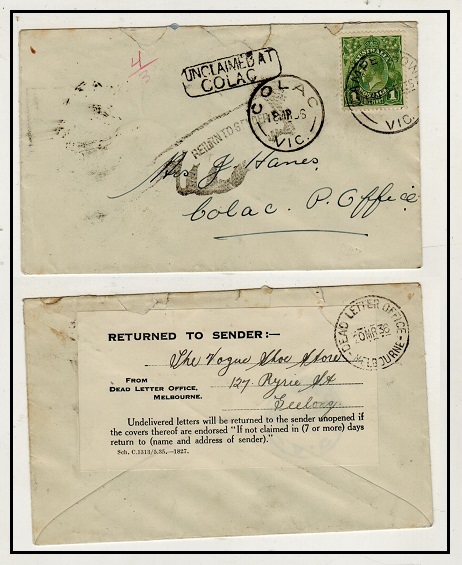 4
3
UNCLAIMED AT
COLAC
COLAC
18 MR 36
VIC.
RETURN TO SENDER
1
VIC.
Mrs J. Hanes,
Colac. P. Office
DEAD LETTER OFFICE
MR 36
MELBOURNE
RETURNED TO SENDER:—
The Vogue Shoe Store
FROM
DEAD LETTER OFFICE,
MELBOURNE.
127 Ryrie St
Geelong
Undelivered letters will be returned to the sender unopened if
the covers thereof are endorsed "If not claimed in (7 or more) days
return to (name and address of sender)."
Sch. C.1313/5.35.—1827.